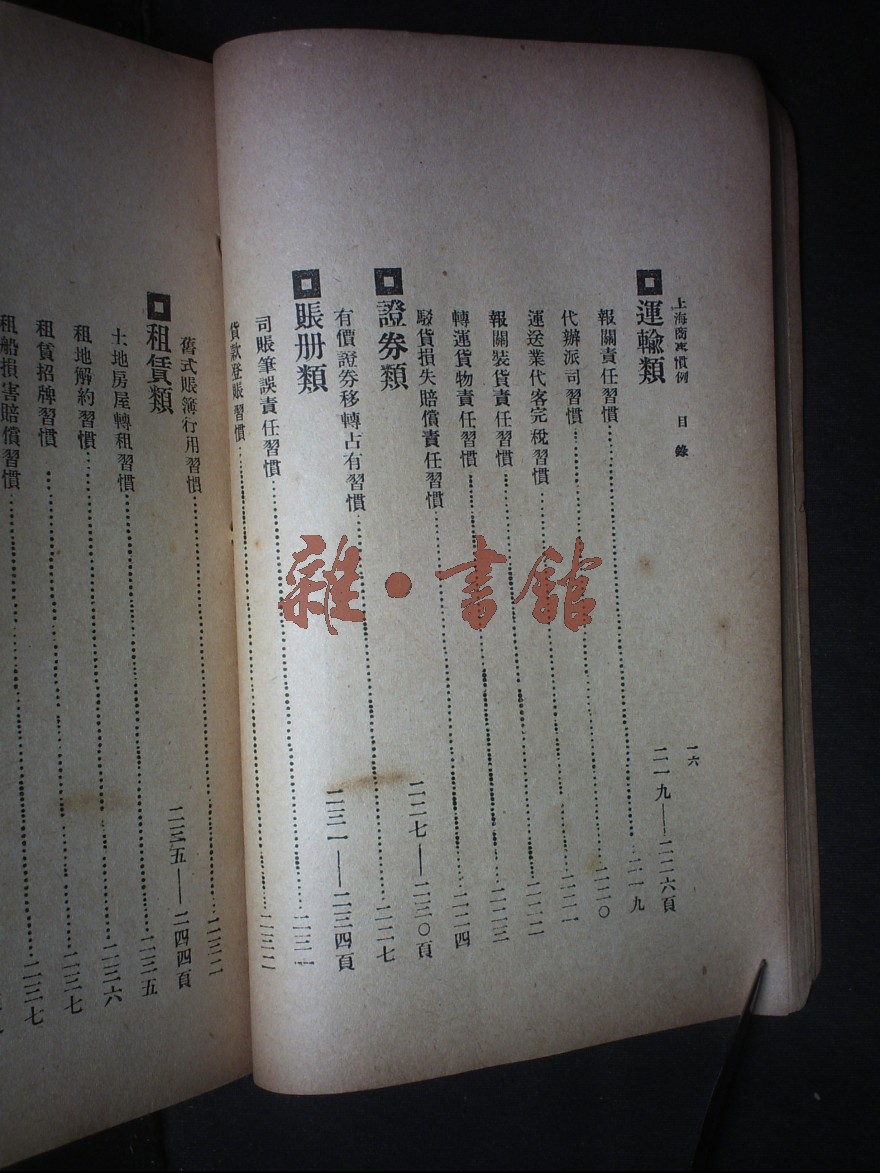 上海商事慣例 目錄 一六
運輸類 二一九——二二六頁
報關責任習慣 二一九
代辦派司習慣 二二〇
運送業代客完稅習慣 二二一
報關裝貨責任習慣 二二二
轉運貨物責任習慣 二二三
駁貨損失賠償責任習慣 二二四
證券類 二二七——二三〇頁
有價證券移轉占有習慣 二二七
賬册類 二三一——二三四頁
司賬筆誤責任習慣 二三一
貨款登賬習慣 二三二
舊式賬簿行用習慣 二三二
租賃類 二三五——二四四頁
土地房屋轉租習慣 二三五
租地解約習慣 二三六
租賃招牌習慣 二三七
租船損害賠償習慣 二三七
雜·書館